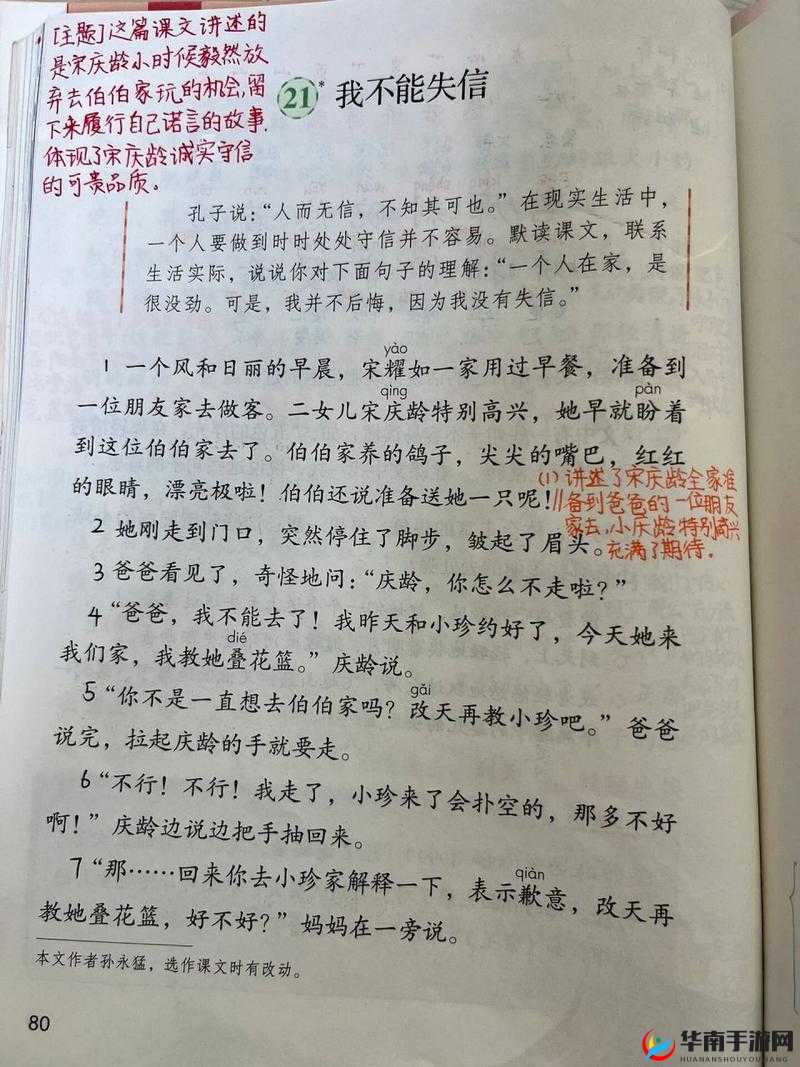 [主题]这篇课文讲述的
是宋庆龄小时候毅然放
弃去伯伯家玩的机会,留
下来履行自己诺言的故事.
体现了宋庆龄诚实守信
的可贵品质。
21* 我不能失信
孔子说：“人而无信，不知其可也。”在现实生活中，
一个人要做到时时处处守信并不容易。默读课文，联系
生活实际，说说你对下面句子的理解：“一个人在家，是
很没劲。可是，我并不后悔，因为我没有失信。”
yào
1 一个风和日丽的早晨，宋耀如一家用过早餐，准备到
qìng pàn
一位朋友家去做客。二女儿宋庆龄特别高兴，她早就盼着
到这位伯伯家去了。伯伯家养的鸽子，尖尖的嘴巴，红红
的眼睛，漂亮极啦！伯伯还说准备送她一只呢！//
(1) 讲述了宋庆龄全家准
备到爸爸的一位朋友
家去,小庆龄特别高兴
充满了期待.
2 她刚走到门口，突然停住了脚步，皱起了眉头。
3 爸爸看见了，奇怪地问：“庆龄，你怎么不走啦？”
4 “爸爸，我不能去了！我昨天和小珍约好了，今天她来
dié
我们家，我教她叠花篮。”庆龄说。
gǎi
5 “你不是一直想去伯伯家吗？改天再教小珍吧。”爸爸
说完，拉起庆龄的手就要走。
6 “不行！不行！我走了，小珍来了会扑空的，那多不好
啊！”庆龄边说边把手抽回来。
qiàn
7 “那……回来你去小珍家解释一下，表示歉意，改天再
教她叠花篮，好不好？”妈妈在一旁说。
本文作者孙永猛，选作课文时有改动。
80
华南手游网
HUANANSHOUYOU.NET